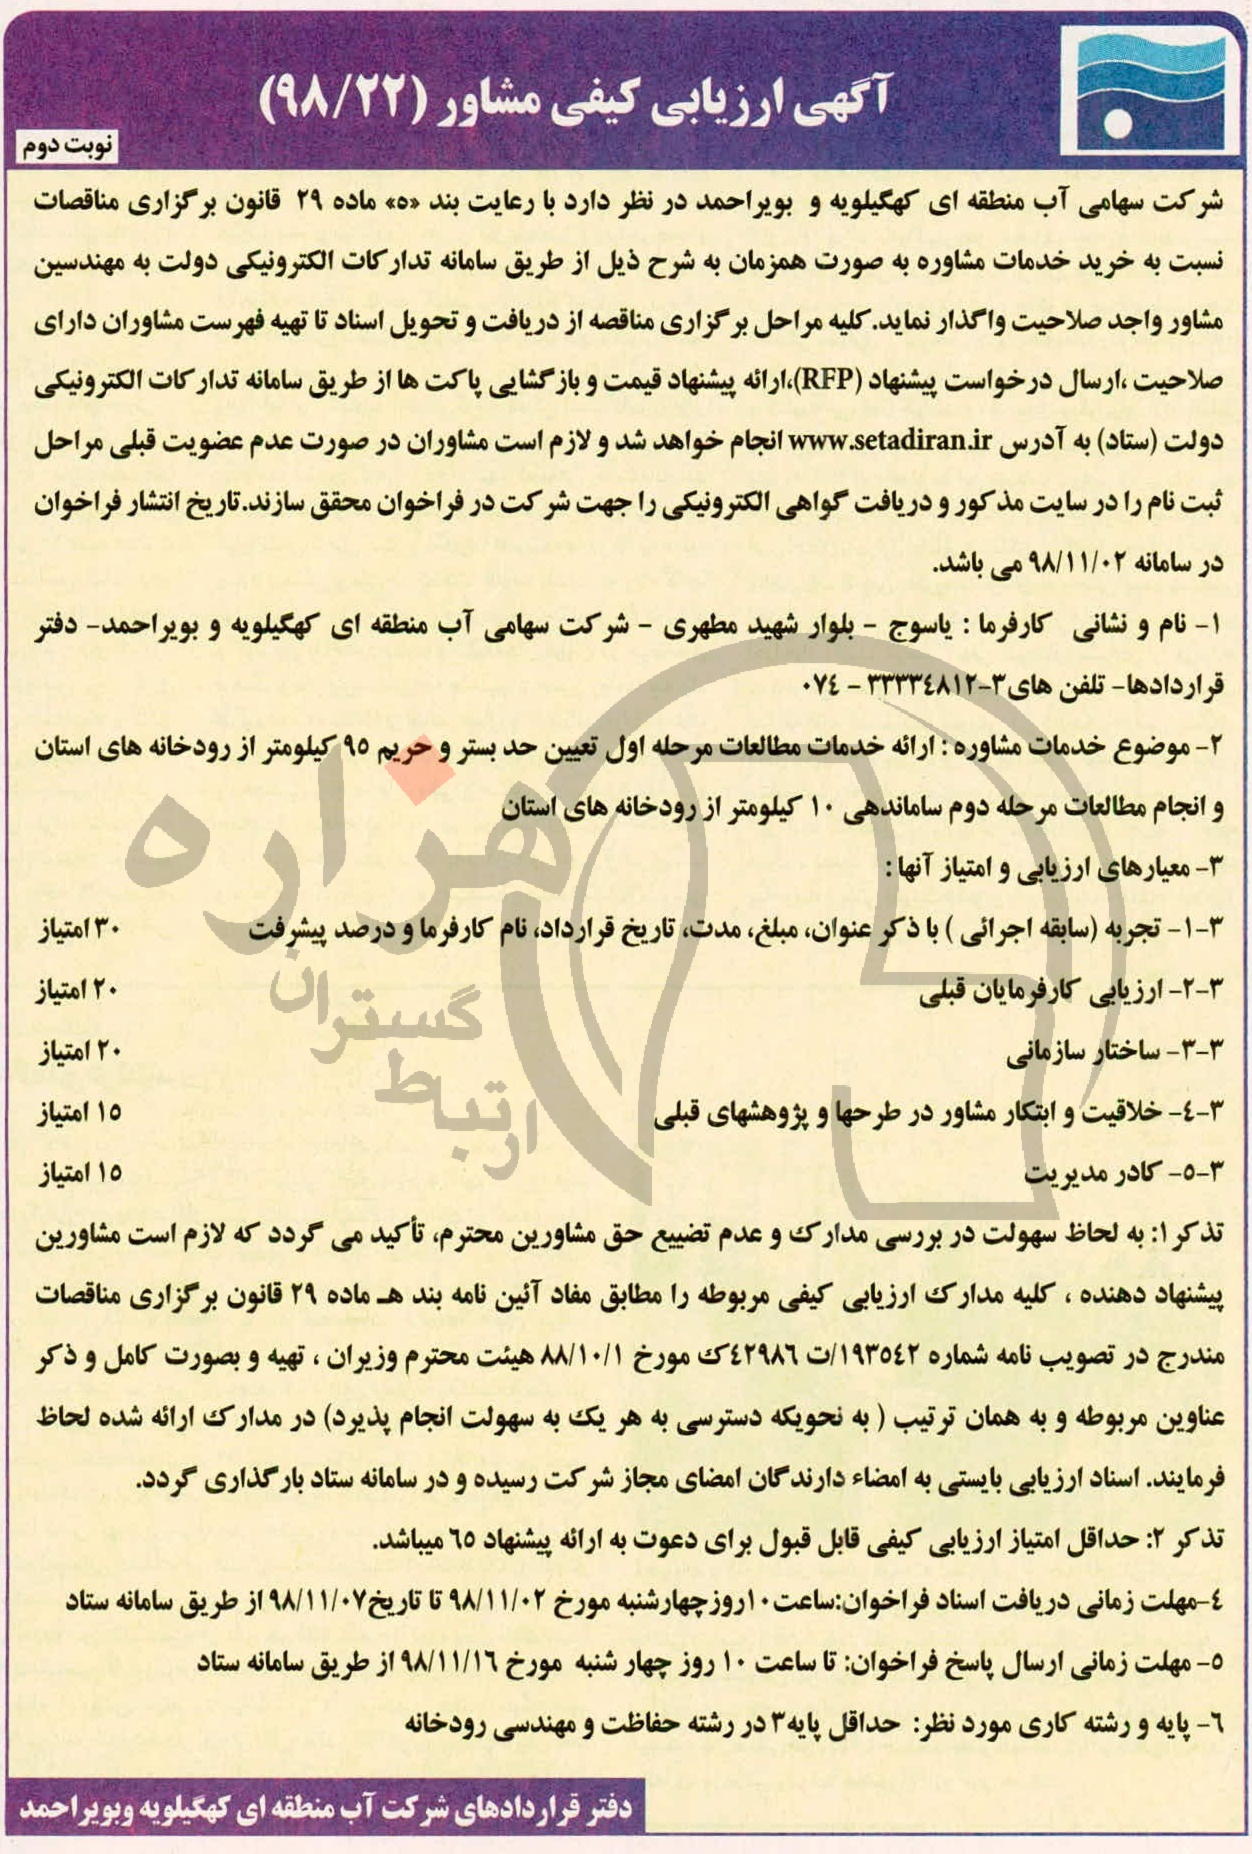 آگهی ارزیابی کیفی مشاور (۹۸/۲۲)
نوبت دوم
شرکت سهامی آب منطقه ای کهگیلویه و بویراحمد در نظر دارد با رعایت بند «ه» ماده ۲۹ قانون برگزاری مناقصات
نسبت به خرید خدمات مشاوره به صورت همزمان به شرح ذیل از طریق سامانه تدارکات الکترونیکی دولت به مهندسین
مشاور واجد صلاحیت واگذار نماید.کلیه مراحل برگزاری مناقصه از دریافت و تحویل اسناد تا تهیه فهرست مشاوران دارای
صلاحیت ،ارسال درخواست پیشنهاد (RFP)،ارائه پیشنهاد قیمت و بازگشایی پاکت ها از طریق سامانه تدارکات الکترونیکی
دولت (ستاد) به آدرس www.setadiran.ir انجام خواهد شد و لازم است مشاوران در صورت عدم عضویت قبلی مراحل
ثبت نام را در سایت مذکور و دریافت گواهی الکترونیکی را جهت شرکت در فراخوان محقق سازند.تاریخ انتشار فراخوان
در سامانه ۹۸/۱۱/۰۲ می باشد.
۱- نام و نشانی کارفرما : یاسوج - بلوار شهید مطهری - شرکت سهامی آب منطقه ای کهگیلویه و بویراحمد- دفتر
قراردادها- تلفن های۳-۳۳۳۳٤۸۱۲ - ۰۷٤
۲- موضوع خدمات مشاوره : ارائه خدمات مطالعات مرحله اول تعیین حد بستر و حریم ۹۵ کیلومتر از رودخانه های استان
و انجام مطالعات مرحله دوم ساماندهی ۱۰ کیلومتر از رودخانه های استان
۳- معیارهای ارزیابی و امتیاز آنها :
۳-۱- تجربه (سابقه اجرائی ) با ذکر عنوان، مبلغ، مدت، تاریخ قرارداد، نام کارفرما و درصد پیشرفت ۳۰ امتیاز
۳-۲- ارزیابی کارفرمایان قبلی ۲۰ امتیاز
۳-۳- ساختار سازمانی ۲۰ امتیاز
۳-٤- خلاقیت و ابتکار مشاور در طرحها و پژوهشهای قبلی ۱۵ امتیاز
۳-۵- کادر مدیریت ۱۵ امتیاز
تذکر۱: به لحاظ سهولت در بررسی مدارک و عدم تضییع حق مشاورین محترم، تأکید می گردد که لازم است مشاورین
پیشنهاد دهنده ، کلیه مدارک ارزیابی کیفی مربوطه را مطابق مفاد آئین نامه بند هـ ماده ۲۹ قانون برگزاری مناقصات
مندرج در تصویب نامه شماره ۱۹۳۵٤۲/ت ٤۲۹۸٦ک مورخ ۸۸/۱۰/۱ هیئت محترم وزیران ، تهیه و بصورت کامل و ذکر
عناوین مربوطه و به همان ترتیب ( به نحویکه دسترسی به هر یک به سهولت انجام پذیرد) در مدارک ارائه شده لحاظ
فرمایند. اسناد ارزیابی بایستی به امضاء دارندگان امضای مجاز شرکت رسیده و در سامانه ستاد بارگذاری گردد.
تذکر ۲: حداقل امتیاز ارزیابی کیفی قابل قبول برای دعوت به ارائه پیشنهاد ٦۵ میباشد.
٤-مهلت زمانی دریافت اسناد فراخوان:ساعت۱۰روزچهارشنبه مورخ ۹۸/۱۱/۰۲ تا تاریخ۹۸/۱۱/۰۷ از طریق سامانه ستاد
۵- مهلت زمانی ارسال پاسخ فراخوان: تا ساعت ۱۰ روز چهار شنبه مورخ ۹۸/۱۱/۱٦ از طریق سامانه ستاد
٦- پایه و رشته کاری مورد نظر: حداقل پایه۳ در رشته حفاظت و مهندسی رودخانه
دفتر قراردادهای شرکت آب منطقه ای کهگیلویه وبویراحمد
هزاره
گستران
ارتباط